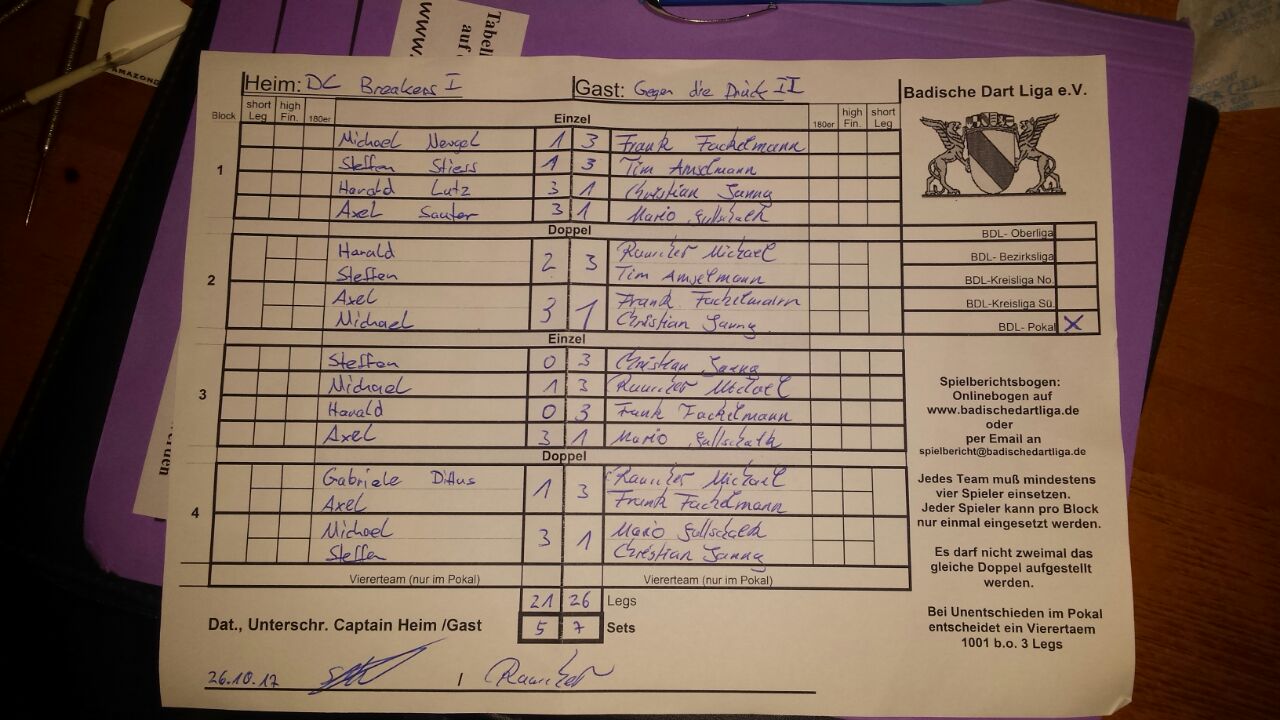 Tabell
auf d
www.
AMAZON
Heim: DC Breakers I Gast: Gegen die Drück II
Badische Dart Liga e.V.
Block short Leg high Fin. 180er Einzel 180er high Fin. short Leg
1
Michael Nengel 1 3 Frank Fackelmann
Steffen Stiess 1 3 Tim Amselmann
Harald Lutz 3 1 Christian Sanny
Axel Sauter 3 1 Mario
Doppel
2
Harald 2 3 Michael
Steffen Tim Amselmann
Axel 3 1 Frank Fackelmann
Michael Christian Sanny
Einzel
3
Steffen 0 3 Christian Sanny
Michael 1 3 Michael
Harald 0 3 Frank Fackelmann
Axel 3 1 Mario
Doppel
4
Gabriele 1 3 Michael
Axel Frank Fackelmann
Michael 3 1 Mario
Steffen Christian Sanny
Viererteam (nur im Pokal) Viererteam (nur im Pokal)
21 26 Legs
5 7 Sets
Dat., Unterschr. Captain Heim /Gast
26.10.17 /
BDL- Oberliga
BDL- Bezirksliga
BDL-Kreisliga No.
BDL-Kreisliga Sü.
BDL- Pokal X
Spielberichtsbogen:
Onlinebogen auf
www.badischedartliga.de
oder
per Email an
spielbericht@badischedartliga.de
Jedes Team muß mindestens
vier Spieler einsetzen.
Jeder Spieler kann pro Block
nur einmal eingesetzt werden.
Es darf nicht zweimal das
gleiche Doppel aufgestellt
werden.
Bei Unentschieden im Pokal
entscheidet ein Vierertaem
1001 b.o. 3 Legs